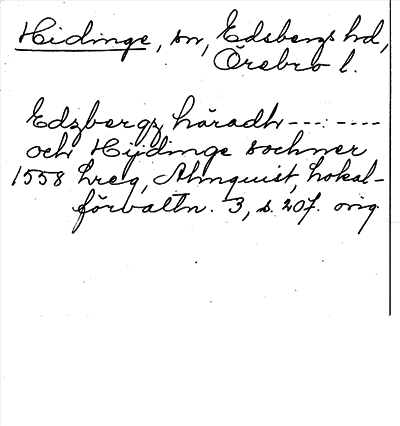 Hidinge, sn, Edsbergs hd,
Örebro l.
Edzbergz häradh ---:----
och Hijdinge sochner
1558 hreg, Almquist, Lokal-
förvaltn. 3, s. 207. orig.